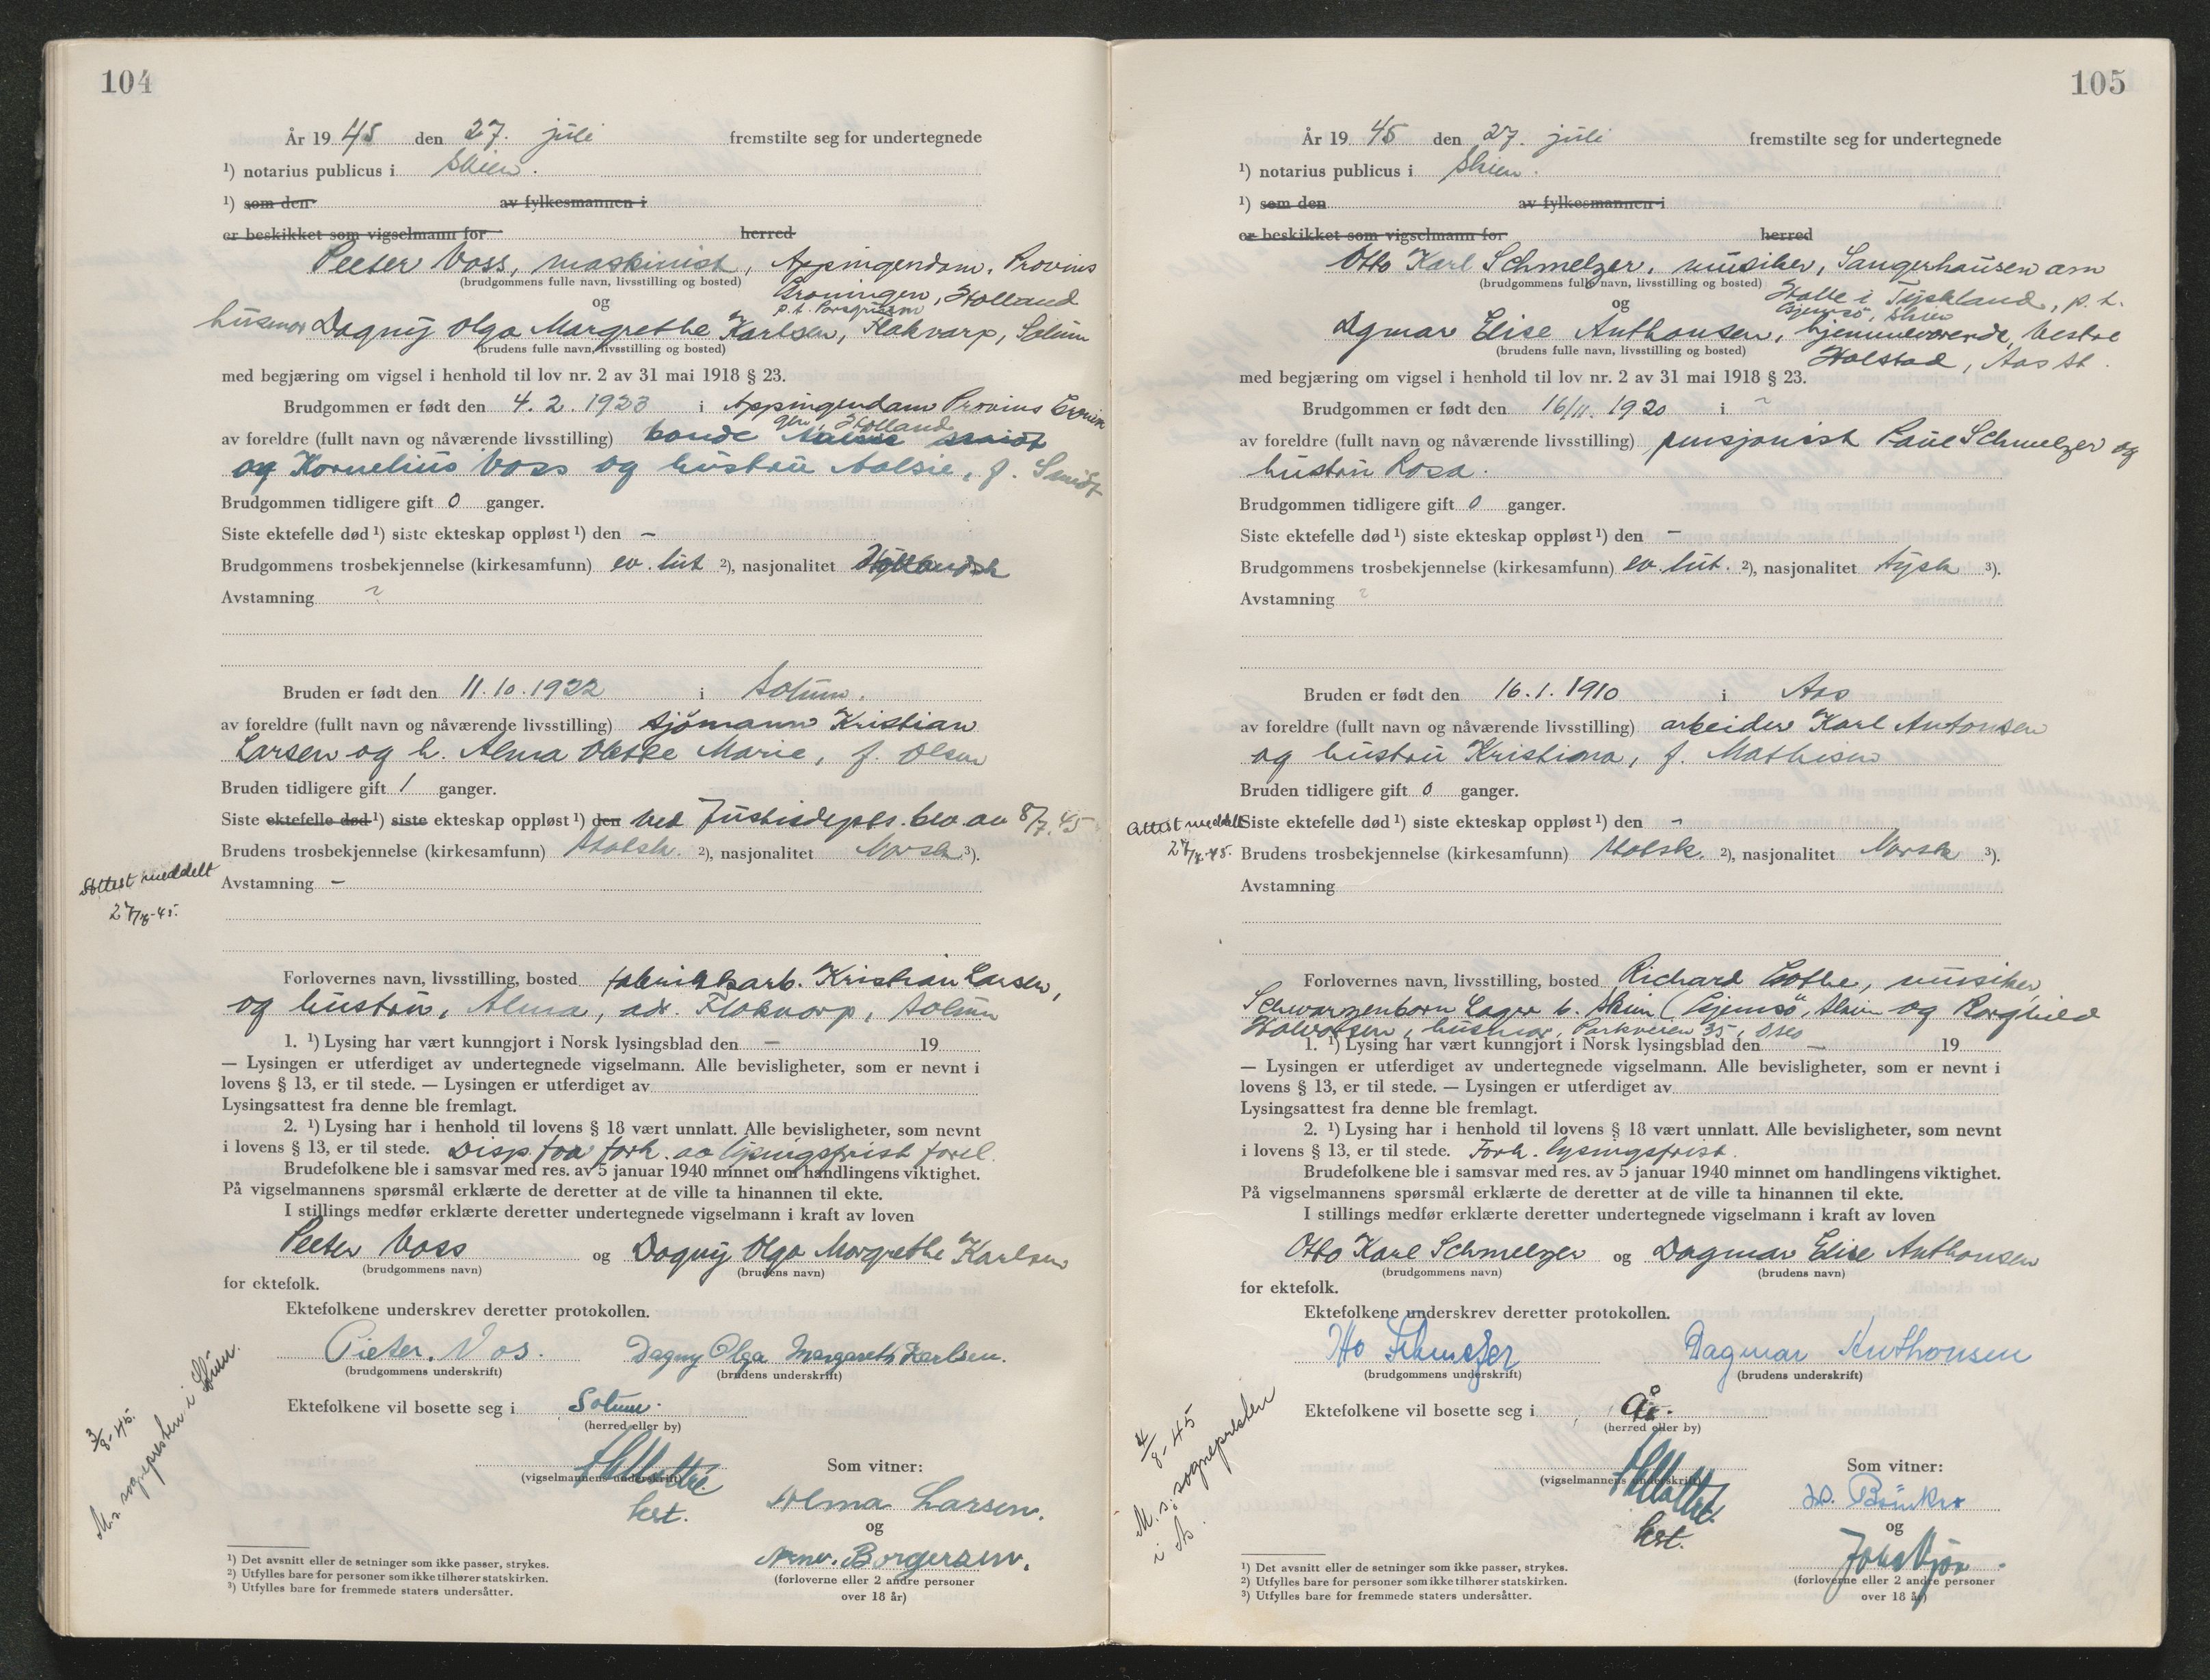 104
År 19 45 den 27. juli fremstilte seg for undertegnede
¹) notarius publicus i Skien.
¹) som den av fylkesmannen i
er beskikket som vigselmann for herred
Peeter Voss, maskinist, Appingendam, Provins
(brudgommens fulle navn, livsstilling og bosted) Groningen, Holland
og p.t. Porsgrunn
husmor Dagny Olga Margrethe Karlsen, Flakvarp, Solum
(brudens fulle navn, livsstilling og bosted)
med begjæring om vigsel i henhold til lov nr. 2 av 31 mai 1918 § 23.
Brudgommen er født den 4. 2. 1923 i Appingendam Provins Gronin
gen, Holland
av foreldre (fullt navn og nåværende livsstilling) bonde
og Kornelius Voss og hustru Aalsie, f. Smidt
Brudgommen tidligere gift 0 ganger.
Siste ektefelle død ¹) siste ekteskap oppløst ¹) den –
Brudgommens trosbekjennelse (kirkesamfunn) ev. lut ²), nasjonalitet Hollandsk
Avstamning ?
Bruden er født den 11. 10. 1922 i Solum.
av foreldre (fullt navn og nåværende livsstilling) sjömann Kristian
Larsen og h. Alma Olette Marie, f. Olsen
Bruden tidligere gift 1 ganger.
Siste ektefelle død ¹) siste ekteskap oppløst ¹) den ved Justisdepts. bev. av 8/7. 45
Brudens trosbekjennelse (kirkesamfunn) Statsk. ²), nasjonalitet Norsk ³).
Attest meddelt
27/7-45.
Avstamning –
Forlovernes navn, livsstilling, bosted fabrikkarb. Kristian Larsen,
og hustru, Alma, adr. Flakvarp, Solum
1. ¹) Lysing har vært kunngjort i Norsk lysingsblad den – 19
— Lysingen er utferdiget av undertegnede vigselmann. Alle bevisligheter, som er nevnt i
lovens § 13, er til stede. — Lysingen er utferdiget av
Lysingsattest fra denne ble fremlagt.
2. ¹) Lysing har i henhold til lovens § 18 vært unnlatt. Alle bevisligheter, som nevnt
i lovens § 13, er til stede. Disp. fra fork. av lysingsfrist forel.
Brudefolkene ble i samsvar med res. av 5 januar 1940 minnet om handlingens viktighet.
På vigselmannens spørsmål erklærte de deretter at de ville ta hinannen til ekte.
I stillings medfør erklærte deretter undertegnede vigselmann i kraft av loven
Peeter Voss og Dagny Olga Margrethe Karlsen
(brudgommens navn) (brudens navn)
for ektefolk.
Ektefolkene underskrev deretter protokollen.
Pieter. Vos. Dagny Olga Margareth Karlsen.
(brudgommens underskrift) (brudens underskrift)
Ektefolkene vil bosette seg i Solum.
(herred eller by)
3/8-45.
M. s. sognepresten i Solum.
(vigselmannens underskrift)
Som vitner:
Alma Larsen.
og
Borgersen.
(forloverne eller 2 andre personer
over 18 år)
¹) Det avsnitt eller de setninger som ikke passer, strykes.
²) Utfylles bare for personer som ikke tilhører statskirken.
³) Utfylles bare for fremmede staters undersåtter.
105
År 19 45 den 27. juli fremstilte seg for undertegnede
¹) notarius publicus i Skien.
¹) som den av fylkesmannen i
er beskikket som vigselmann for herred
Otto Karl Schmelzer, musiker, Sangerhausen am
(brudgommens fulle navn, livsstilling og bosted) Halle i Tyskland, p. t.
og Gjemsö, Skien
Dgmar Elise Anthonsen, hjemmeværende, Vestre
(brudens fulle navn, livsstilling og bosted) Holstad, Aas st.
med begjæring om vigsel i henhold til lov nr. 2 av 31 mai 1918 § 23.
Brudgommen er født den 16/11. 1920 i ?
av foreldre (fullt navn og nåværende livsstilling) pensjonist Paul Schmelzer og
hustru Rosa.
Brudgommen tidligere gift 0 ganger.
Siste ektefelle død ¹) siste ekteskap oppløst ¹) den –
Brudgommens trosbekjennelse (kirkesamfunn) ev. lut. ²), nasjonalitet tysk ³).
Avstamning ?
Bruden er født den 16. 1. 1910 i Aas
av foreldre (fullt navn og nåværende livsstilling) arbeider Karl Antonsen
og hustru Kristiana, f. Mathisen
Bruden tidligere gift 0 ganger.
Attest meddelt
27/7-45.
Siste ektefelle død ¹) siste ekteskap oppløst ¹) den -
Brudens trosbekjennelse (kirkesamfunn) Statsk. ²), nasjonalitet Norsk ³).
Avstamning
Forlovernes navn, livsstilling, bosted Richard Gothe, musiker,
Schwarzenborn Lager b. Skien (Gjemsö, Skien og Borghild
Halvorsen, husmor, Parkveien 35, Oslo
1. ¹) Lysing har vært kunngjort i Norsk lysingsblad den — 19
— Lysingen er utferdiget av undertegnede vigselmann. Alle bevisligheter, som er nevnt i
lovens § 13, er til stede. — Lysingen er utferdiget av
Lysingsattest fra denne ble fremlagt.
2. ¹) Lysing har i henhold til lovens § 18 vært unnlatt. Alle bevisligheter, som nevnt
i lovens § 13, er til stede. Fork. lysingsfrist.
Brudefolkene ble i samsvar med res. av 5 januar 1940 minnet om handlingens viktighet.
På vigselmannens spørsmål erklærte de deretter at de ville ta hinannen til ekte.
I stillings medfør erklærte deretter undertegnede vigselmann i kraft av loven
Otto Karl Schmelzer og Dagmar Elise Anthonsen
(brudgommens navn) (brudens navn)
for ektefolk.
Ektefolkene underskrev deretter protokollen.
Otto Schmelzer Dagmar Anthonsen
(brudgommens underskrift) (brudens underskrift)
Ektefolkene vil bosette seg i Ås.
(herred eller by)
4/8-45
M. s. sognepresten
i Ås.
(vigselmannens underskrift)
Som vitner:
og
(forloverne eller 2 andre personer
over 18 år)
¹) Det avsnitt eller de setninger som ikke passer, strykes.
²) Utfylles bare for personer som ikke tilhører statskirken.
³) Utfylles bare for fremmede staters undersåtter.